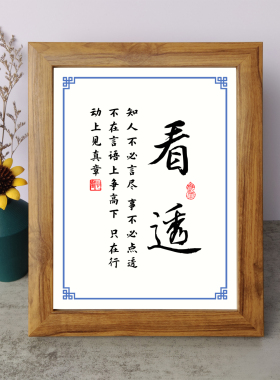 看透
知人不必言尽 事不必点透
不在言语上争高下 只在行
动上见真章